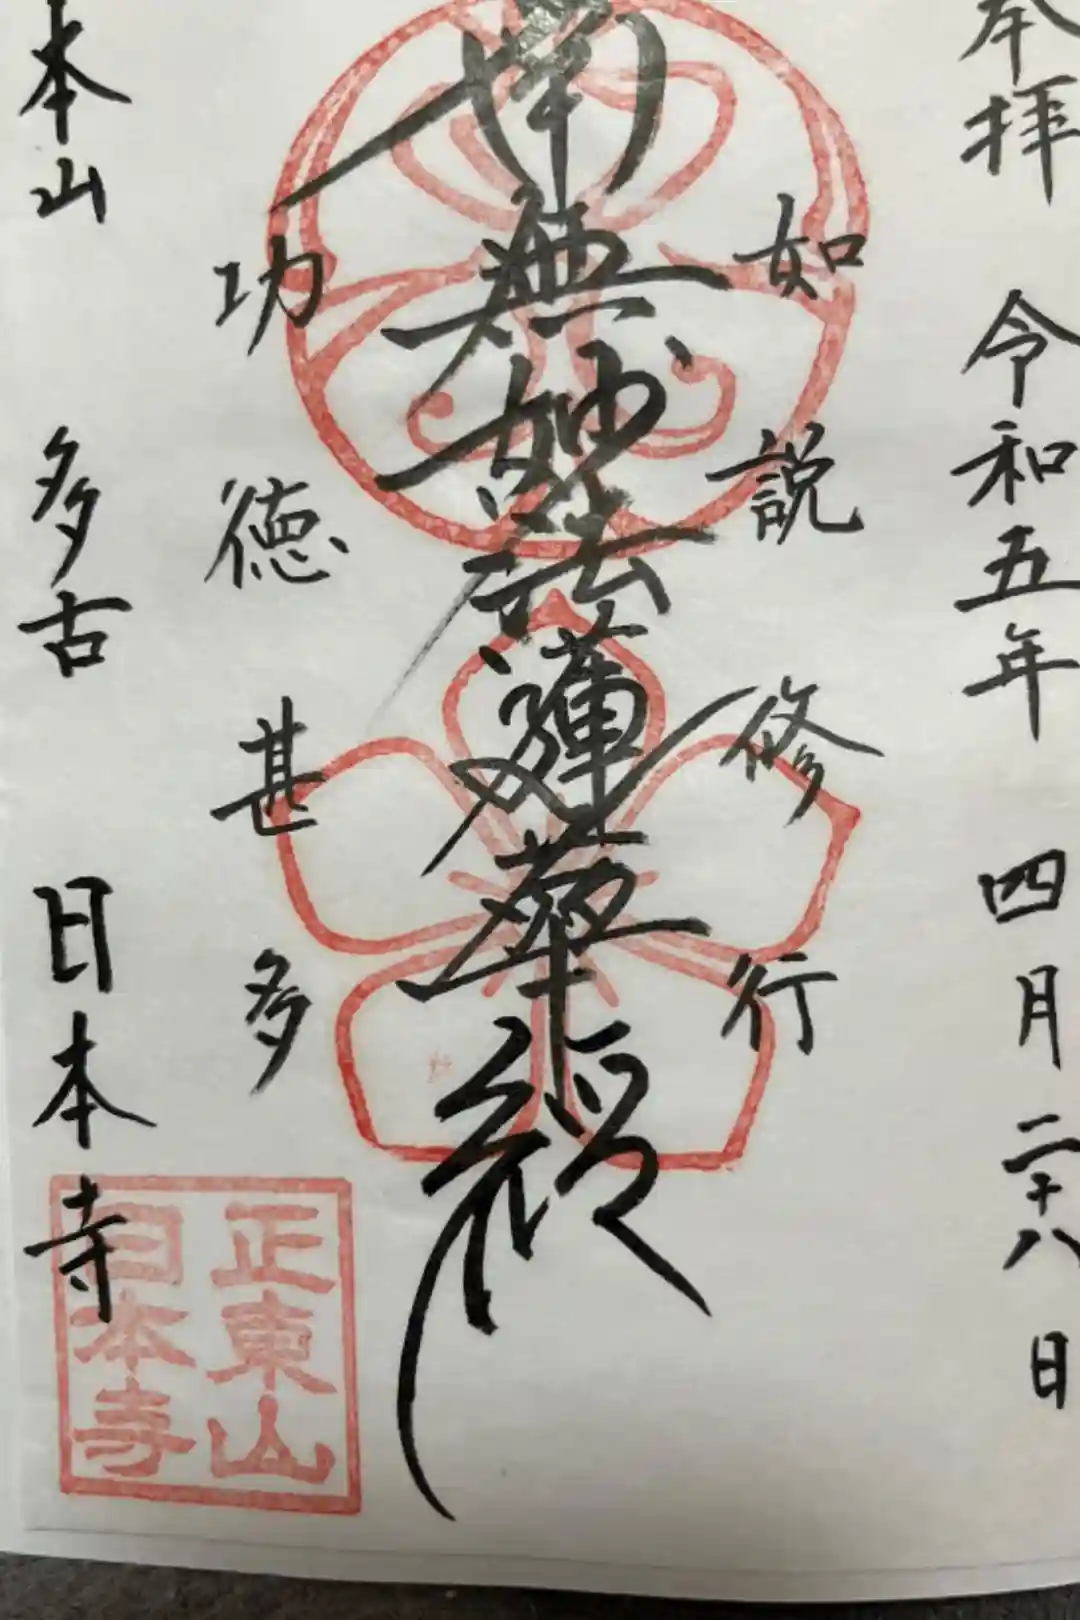 奉拝 令和五年 四月二十八日
如説修行
南無妙法蓮華経
功徳甚多
本山 多古 日本寺
正東山
日本寺